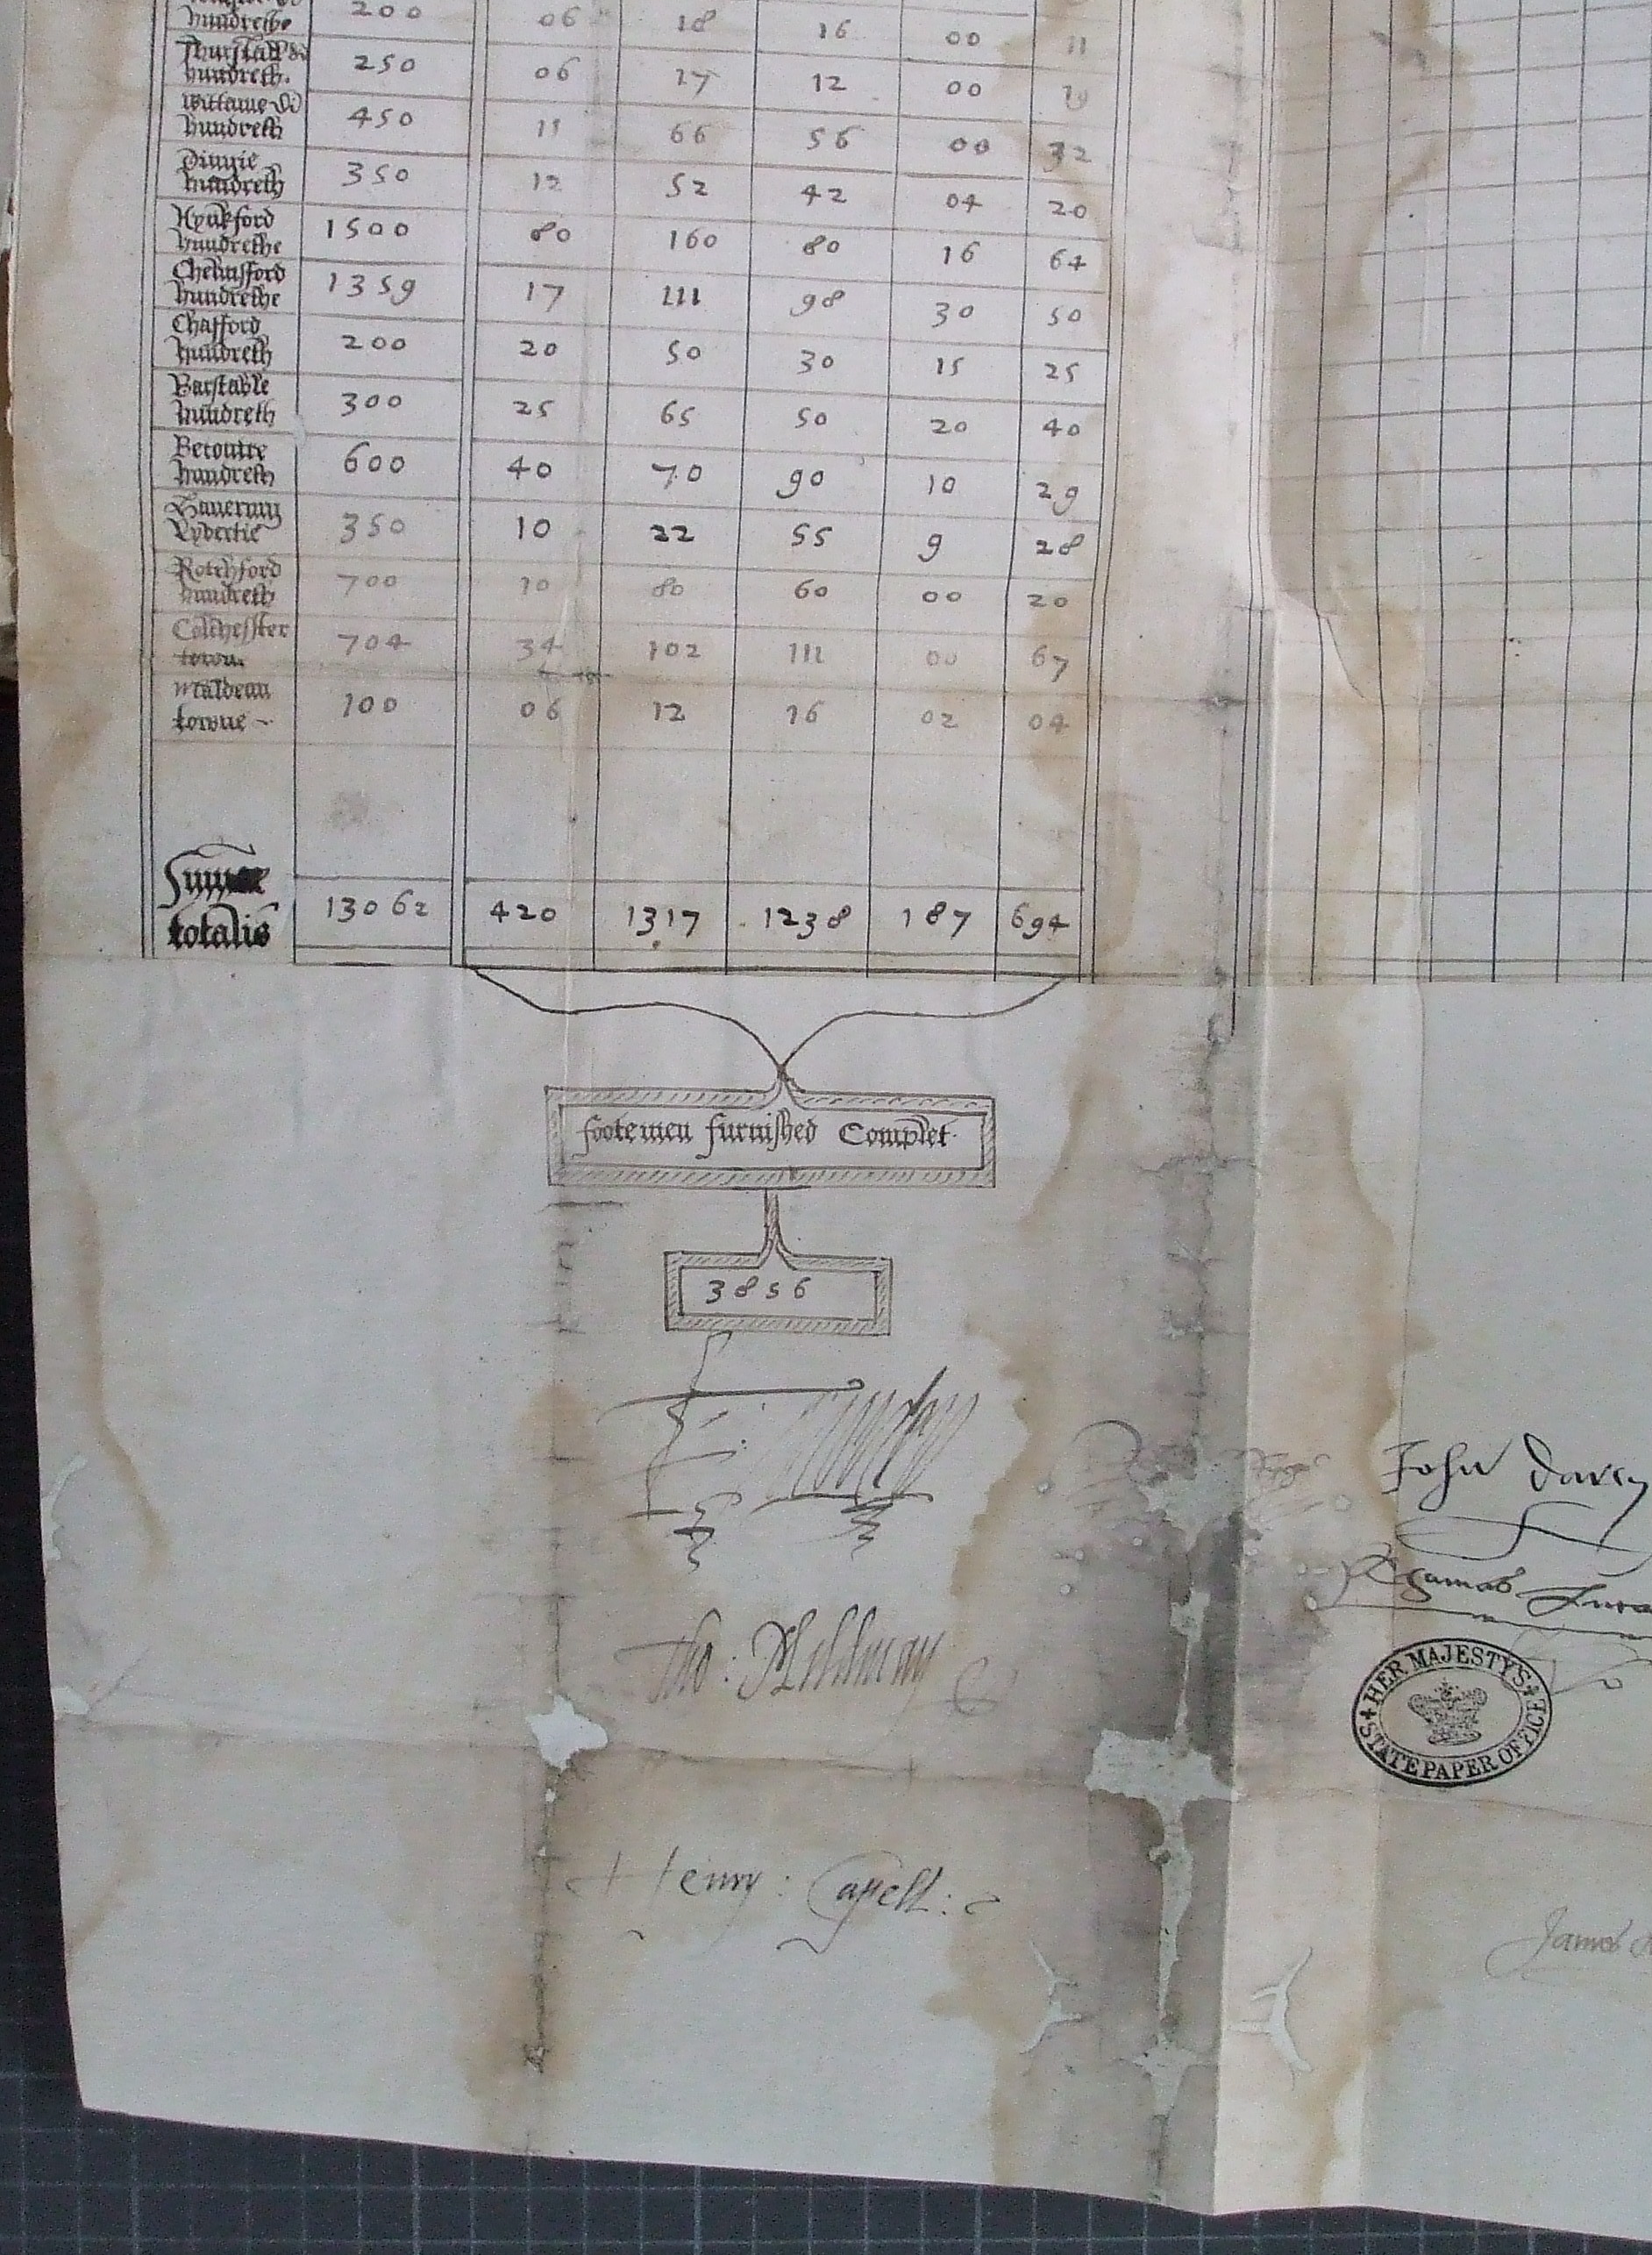 hundrethe 200 06 18 16 00 11
Thurstall di
hundreth. 250 06 17 12 00
Wittame di
hundreth 450 11 66 56 00 32
Dingie
hundreth 350 12 52 42 04 20
Hynkford
hundrethe 1500 80 160 80 16 64
Chelmsford
hundrethe 1359 17 111 98 30 50
Chafford
hundreth 200 20 50 30 15 25
Barstable
hundreth 300 25 65 50 20 40
Becontre
hundreth 600 40 70 90 10 29
Havering
Lybertie 350 10 22 55 9 28
Rotchford
hundreth 700 10 80 60 00 20
Colchesster
towne 704 34 102 111 00 67
Maldean
towne 100 06 12 16 02 04
Summa
totalis 13062 420 1317 1238 187 694
footemen furnished Complet
3856
John Darcy
Tho: Mildmay
HER MAJESTY'S
STATE PAPER OFFICE
Henry: Capell:
James